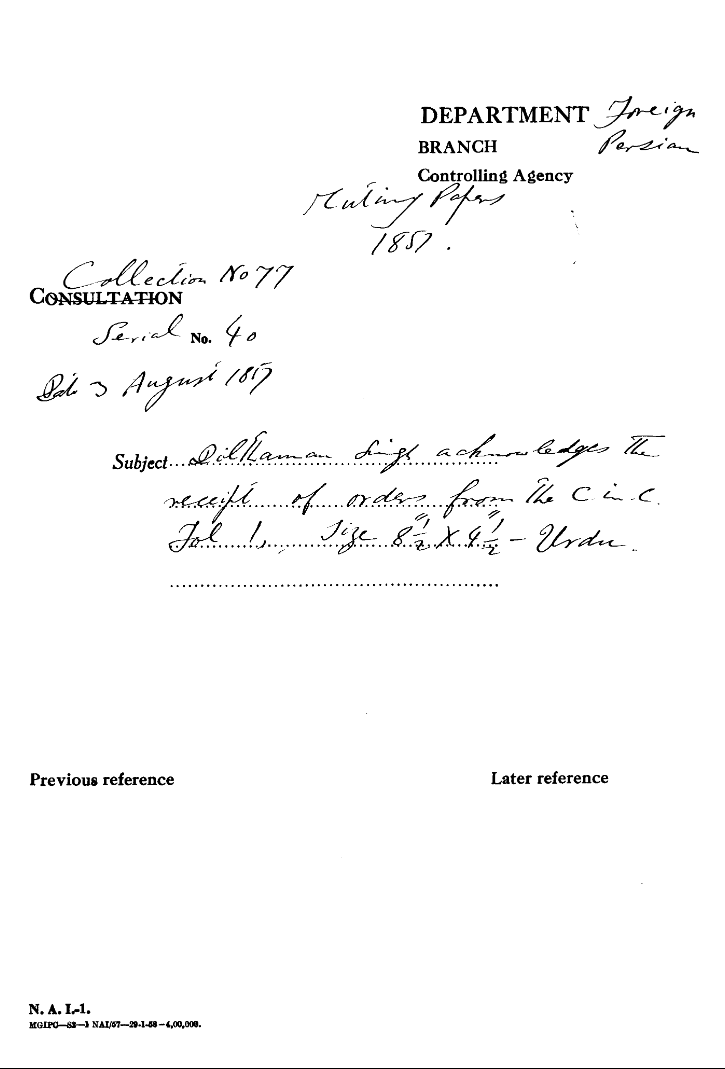 DEPARTMENT Foreign
BRANCH Persian
Controlling Agency
Mutiny Papers
1857.
Collection No 77
CONSULTATION
Serial No. 40
3 August 1857
Subject... Singh acknowledges the
receipt of orders from the C in C.
Fol 1, Size 8 1/2" X 4 1/2" - Urdu.
Previous reference
Later reference
N. A. I.-1.
MGIPC—S3—1 NAI/57—29-1-58—4,00,000.